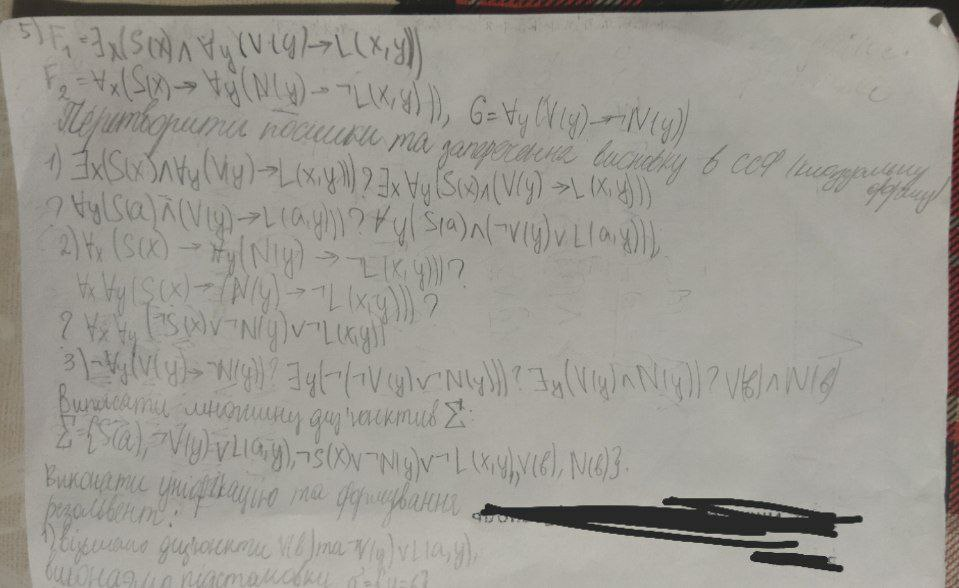 5) F₁ = ∃x(S(x) ∧ ∀y(V(y) → L(x,y)))
F₂ = ∀x(S(x) → ∀y(N(y) → ¬L(x,y))), G = ∀y(V(y) → ¬N(y))
Перетворити посилки та заперечення висновку в ССФ (клаузальну форму)
1) ∃x(S(x) ∧ ∀y(V(y) → L(x,y))) ? ∃x∀y(S(x) ∧ (V(y) → L(x,y)))
? ∀y(S(a) ∧ (V(y) → L(a,y))) ? ∀y(S(a) ∧ (¬V(y) ∨ L(a,y))),
2) ∀x(S(x) → ∀y(N(y) → ¬L(x,y))) ?
∀x∀y(S(x) → (N(y) → ¬L(x,y))) ?
? ∀x∀y(¬S(x) ∨ ¬N(y) ∨ ¬L(x,y))
3) ¬∀y(V(y) → ¬N(y)) ? ∃y(¬(¬V(y) ∨ ¬N(y))) ? ∃y(V(y) ∧ N(y)) ? V(в) ∧ N(в)
Виписати множину диз'юнктив Σ:
Σ = {S(a), ¬V(y) ∨ L(a,y), ¬S(x) ∨ ¬N(y) ∨ ¬L(x,y), V(в), N(в)}.
Виконати уніфікацію та формування
резольвент:
1) візьмемо диз'юнкти V(в) та ¬V(y) ∨ L(a,y),
підстановки σ = {y=в}